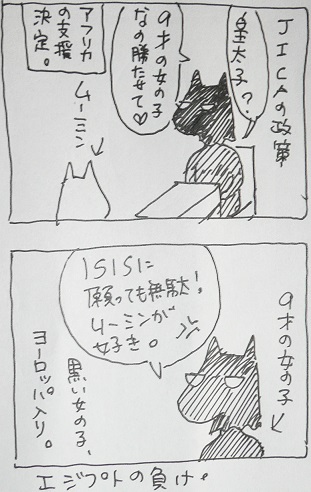 JICAの政策
皇太子?
9才の女の子
なの勝たせて♡
アフリカ
の支援
決定。
ムーミン
9才の女の子
ISISに
願っても無駄!
ムーミンが
好き。
黒い女の子、
ヨーロッパ入り。
エジプトの負け。